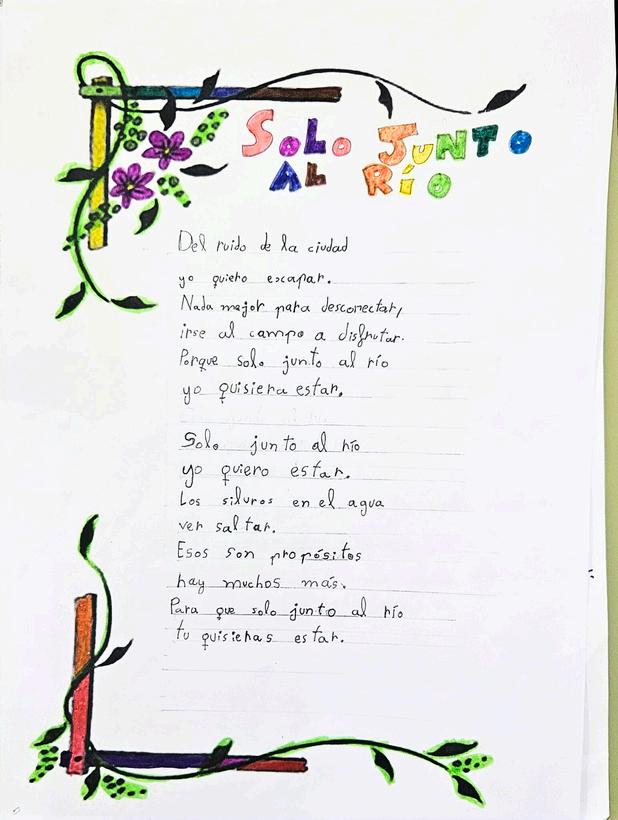 SOLO JUNTO
AL RÍO
Del ruido de la ciudad
yo quiero escapar.
Nada mejor para desconectar,
irse al campo a disfrutar.
Porque solo junto al río
yo quisiera estar.
Solo junto al río
yo quiero estar.
Los siluros en el agua
ver saltar.
Esos son propósitos
hay muchos más.
Para que solo junto al río
tu quisieras estar.